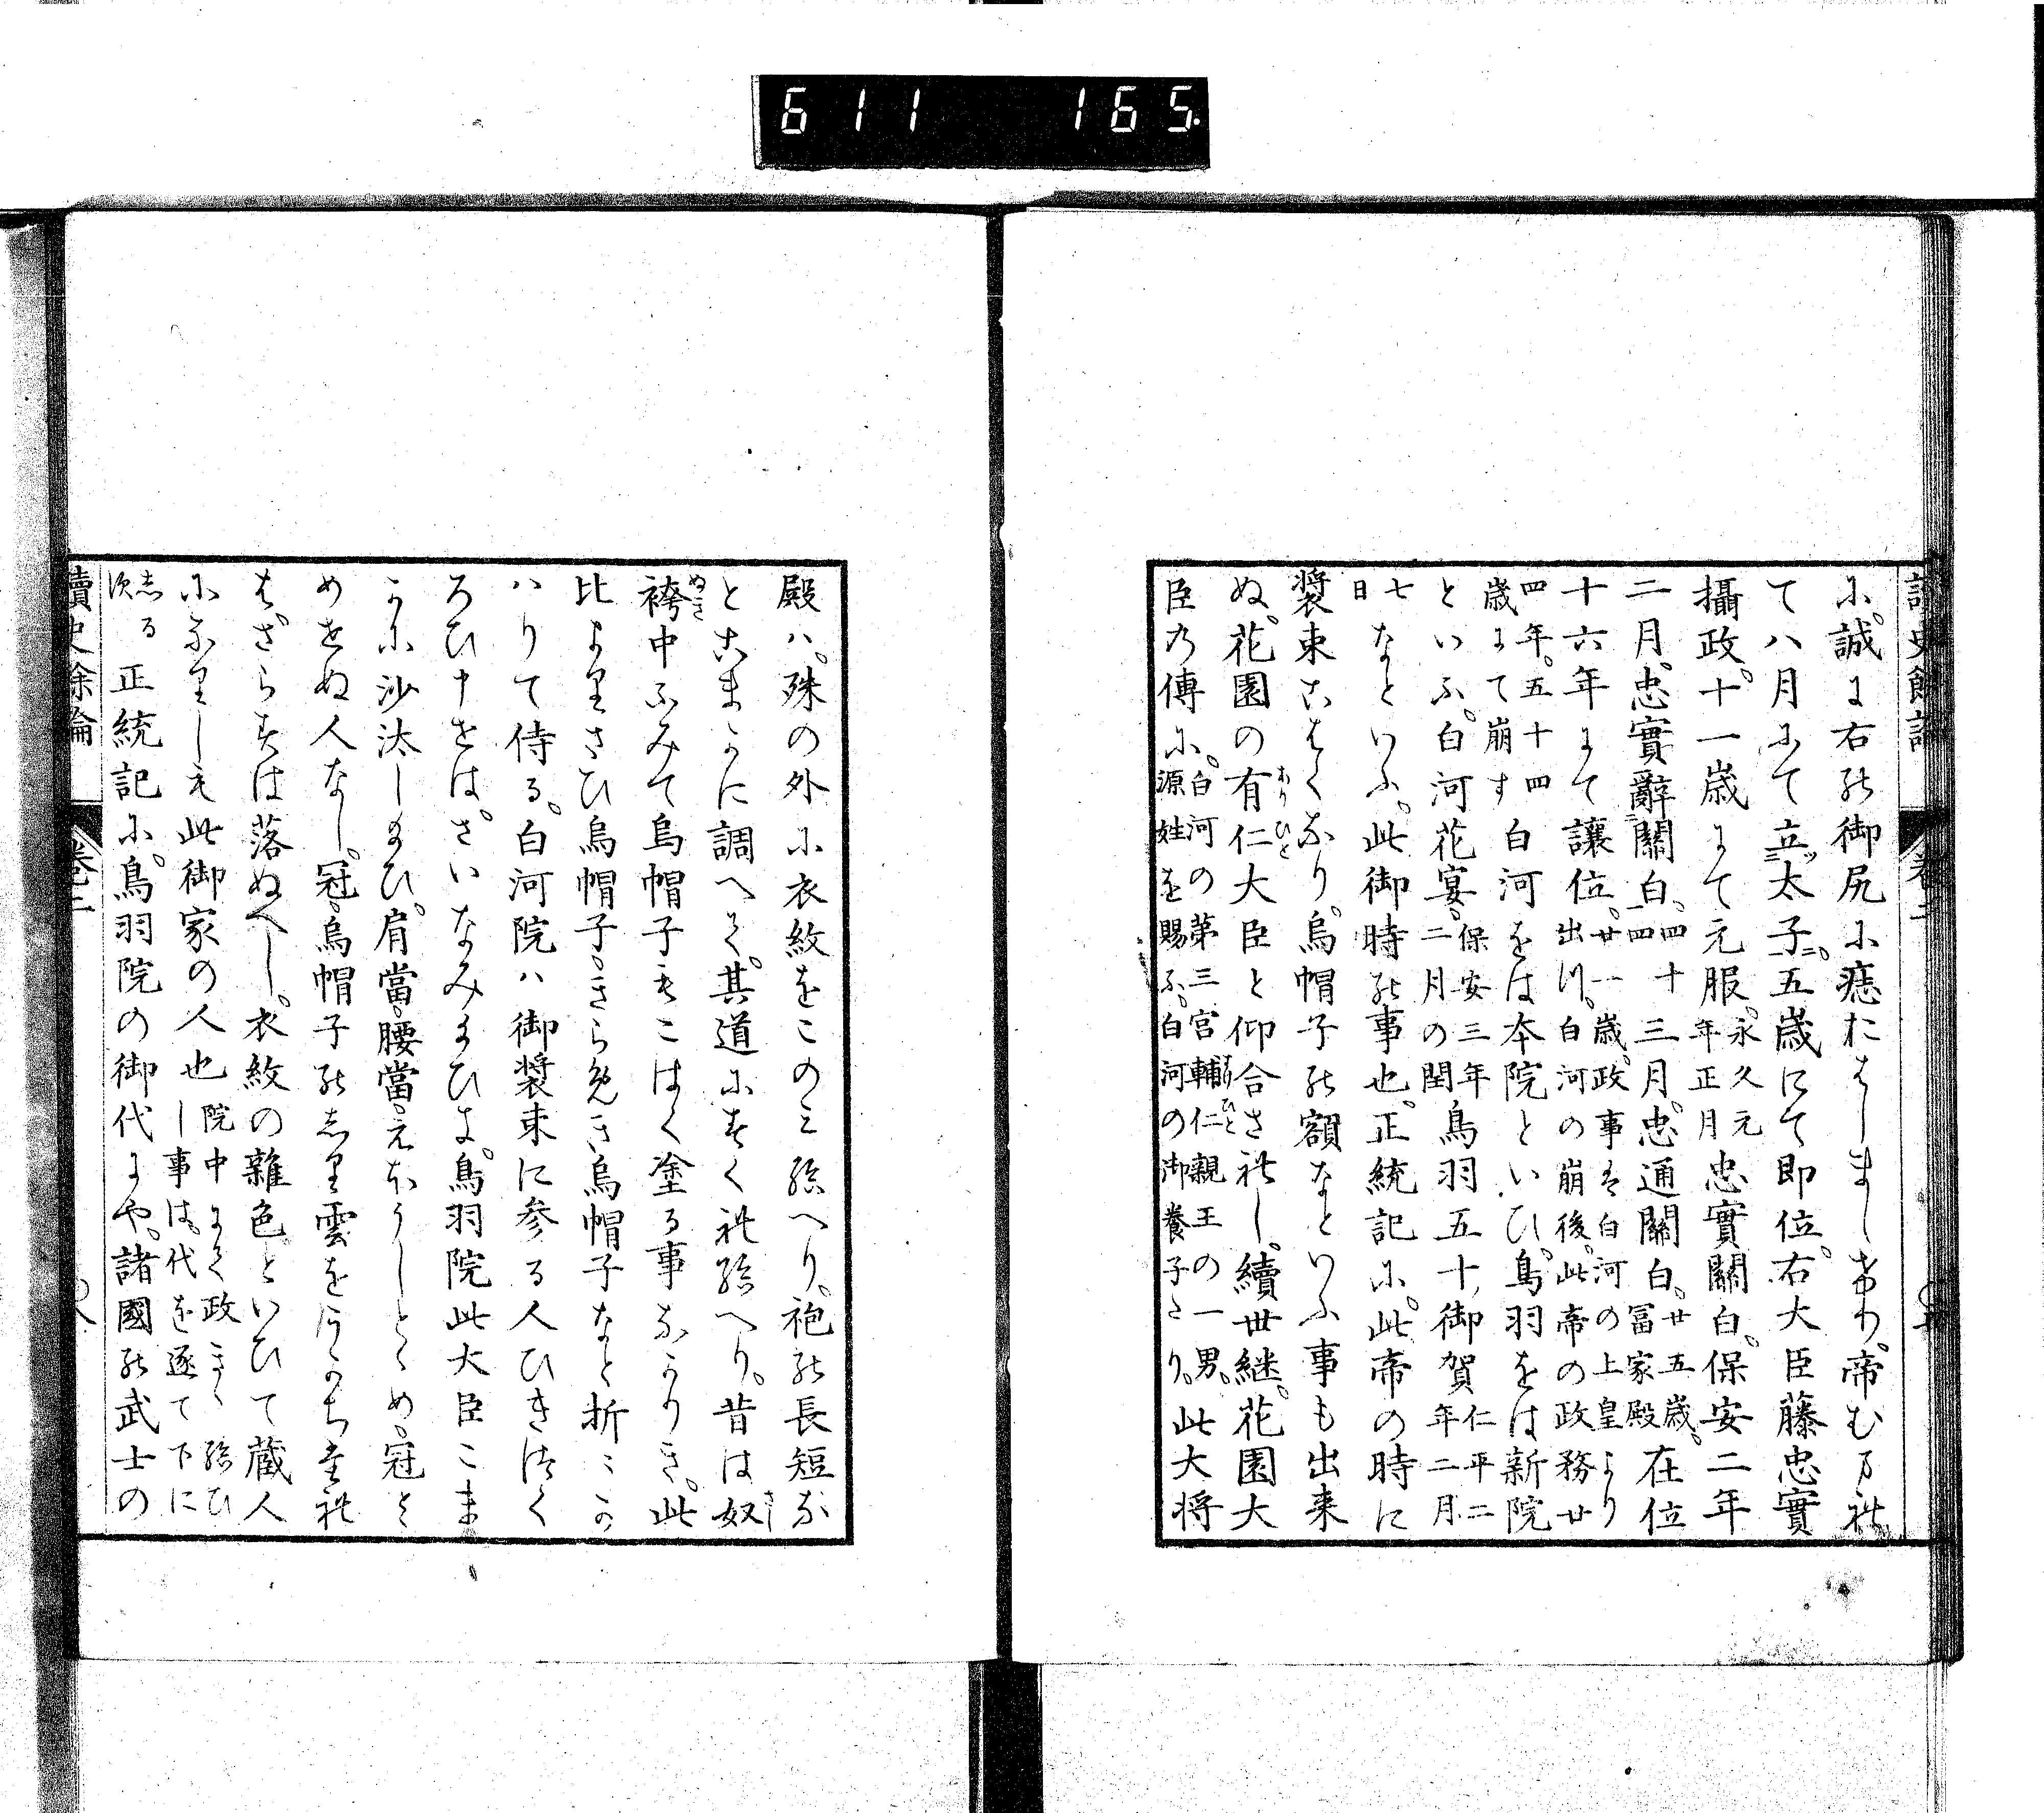 611 165.
讀史餘論 卷二
に。誠に右の御尻に痣おはしましき。帝むまれ
て八月にて立太子。五歳にて即位。右大臣藤忠實
攝政。十一歳にて元服。永久元年正月忠實關白。保安二年
二月。忠實辭關白。四十四三月。忠通關白。廿五歳。冨家殿在位
十六年にて讓位。廿一歳。政事は白河の上皇より出川。白河の崩後。此帝の政務廿
四年。五十四歳にて崩す白河をは本院といひ。鳥羽をは新院
といふ。白河花宴。保安三年二月の閏鳥羽五十御賀仁平二年二月
七日なといふ。此御時の事也。正統記に。此帝の時に
裝束こはくなり。烏帽子の額なといふ事も出来
ぬ。花園の有仁大臣と仰合されし。續世継。花園大
臣の傳に。白河の第三宮輔仁親王の一男。源姓を賜ふ。白河の御養子たり。此大将
殿ハ。殊の外に衣紋をこのみ給へり。袍の長短な
とこまかに調へて。其道にすくれ給へり。昔は奴
袴中ふみて烏帽子もこはく塗る事なかりき。此
比よりさひ烏帽子。きらめき烏帽子なと折ミか
ハりて侍る。白河院ハ御裝束に参る人ひきつく
ろひナとは。さいなみまひき。鳥羽院此大臣こま
かに沙汰しまひ。肩當。腰當。えぼうしとゝめ。冠と
めせぬ人なし。冠。烏帽子のしり雲をうかちたれ
はざらすは落ぬへし。衣紋の雜色といひて蔵人
になりしも此御家の人也院中にて政きゝ給ひし事は。代を逐て下に
しる次正統記に。鳥羽院の御代にや。諸國の武士の
讀史余論 卷二 八